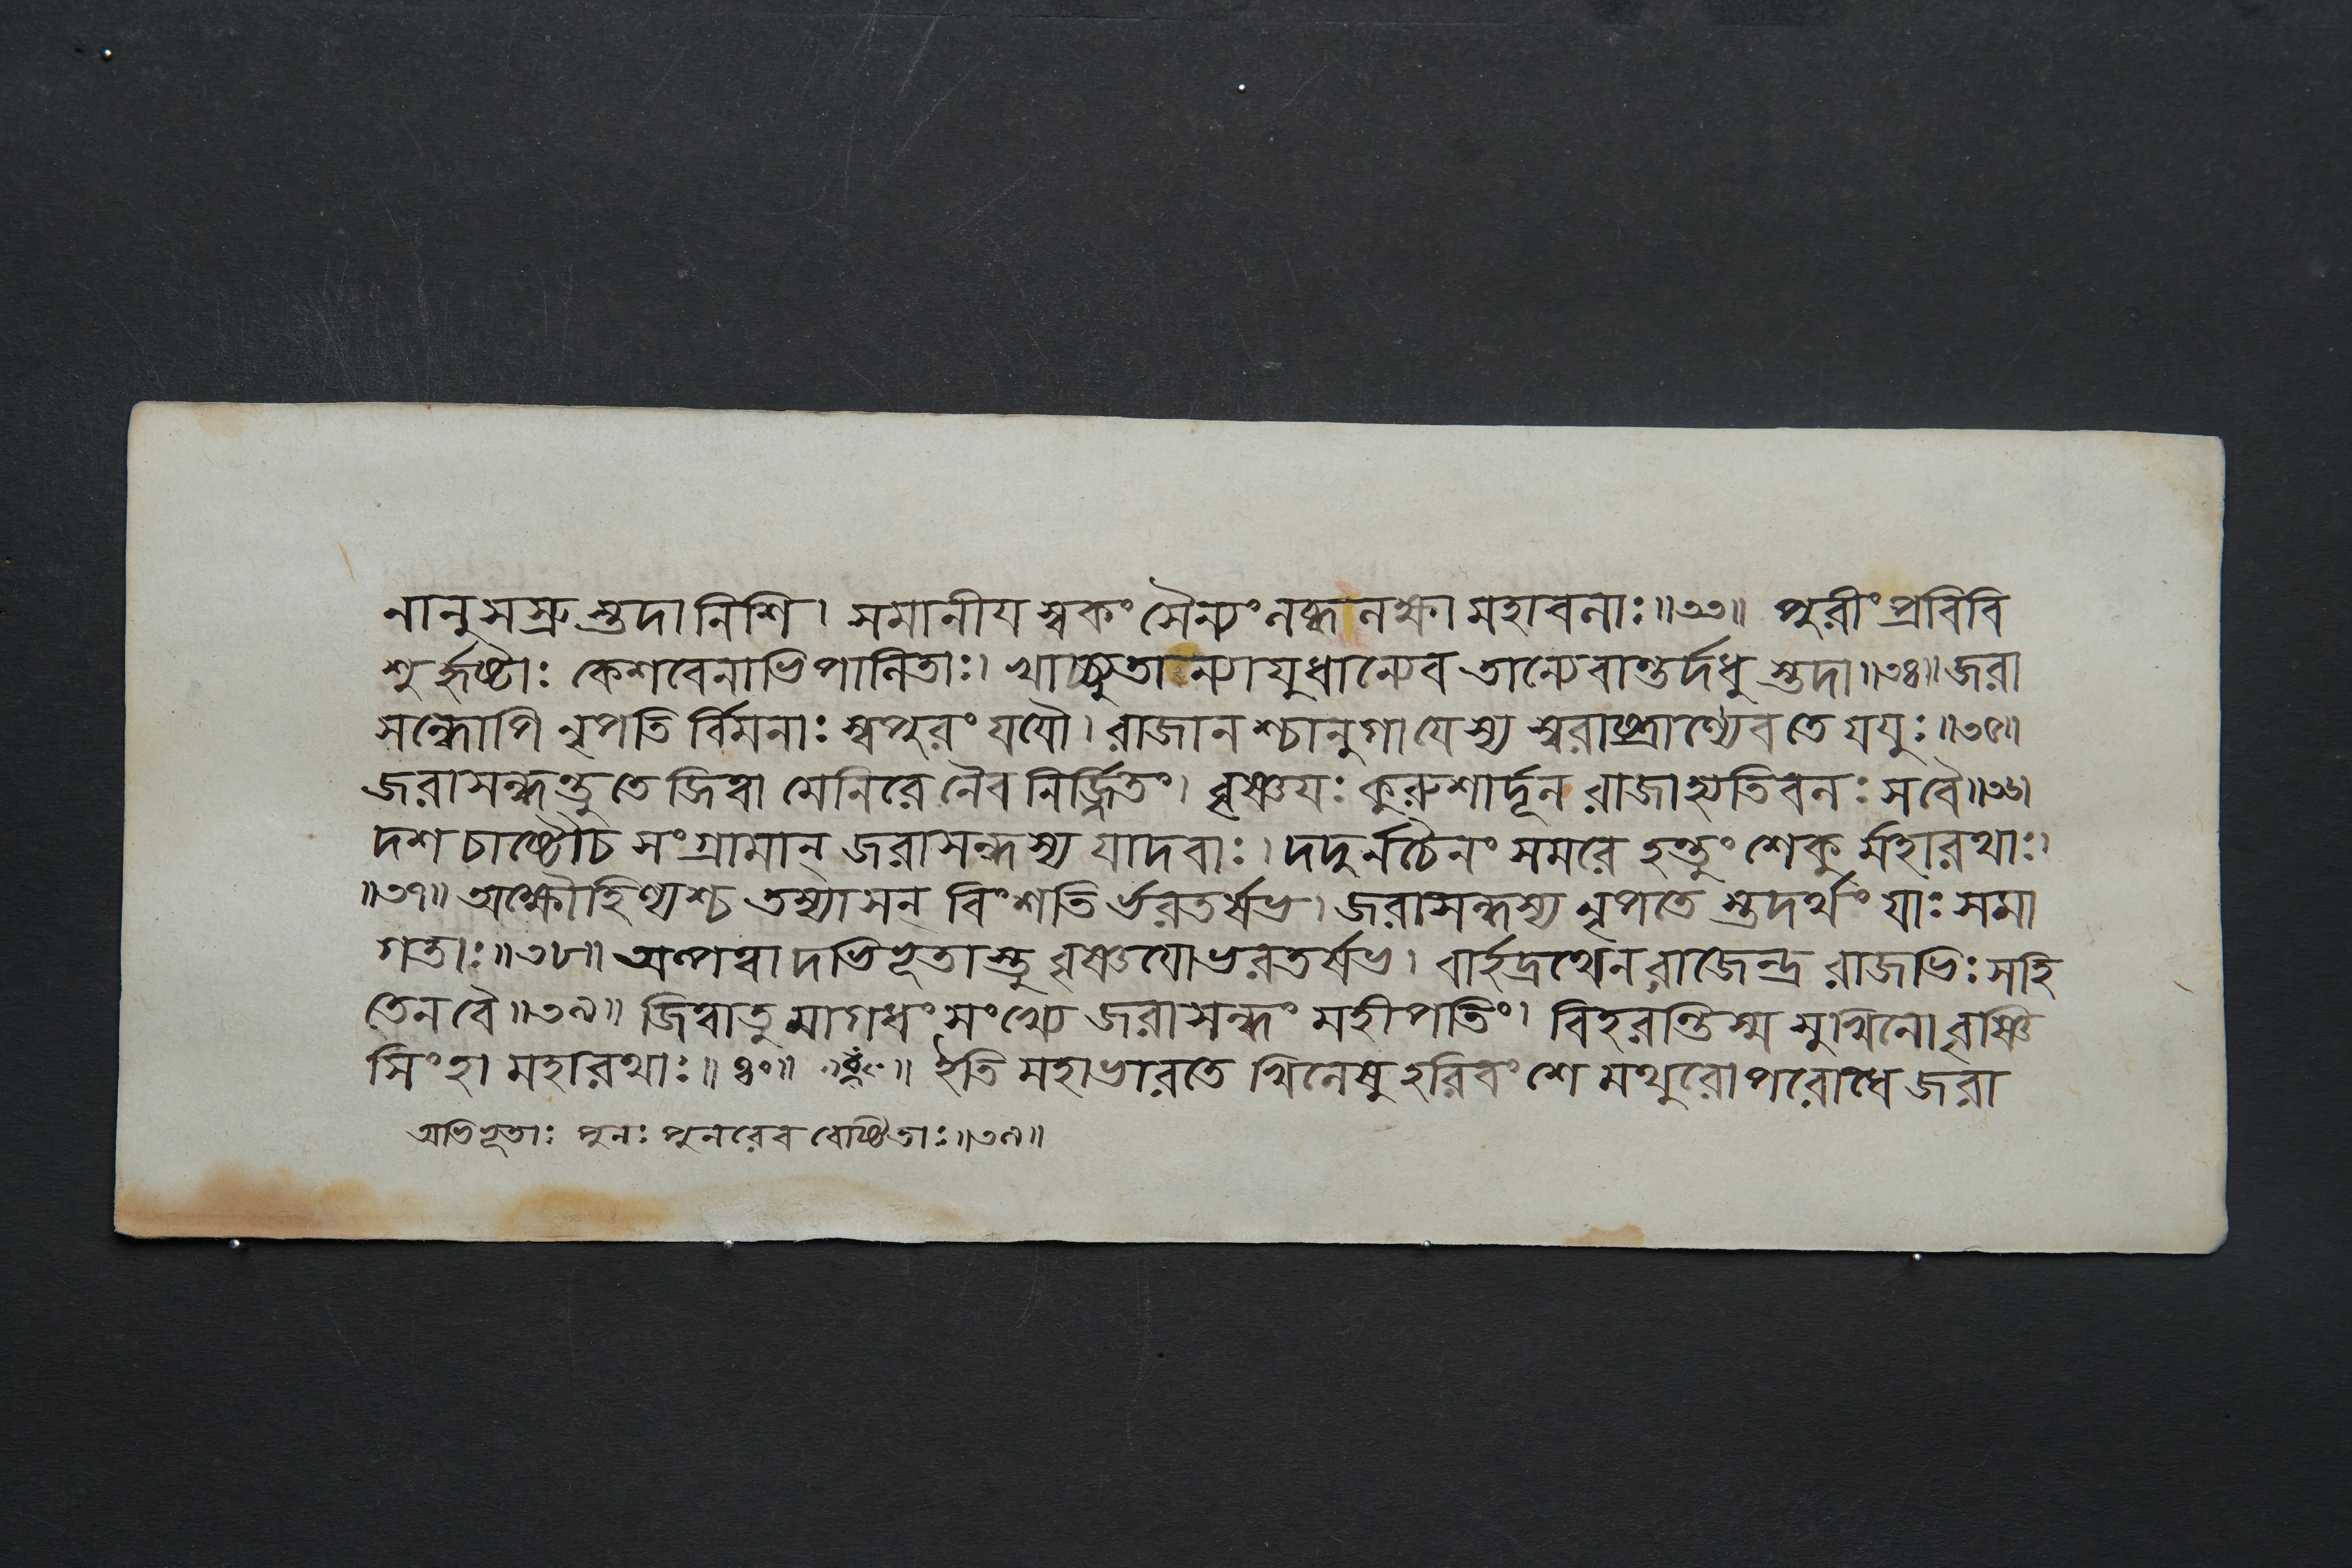 নানুসস্রুস্তদানিশি। সমানীয স্বকং সৈন্যং লব্ধলক্ষ্যো মহাবলাঃ॥৩৩॥ পুরীং প্রবিবি
শুর্হৃষ্টাঃ কেশবেনাভিপালিতাঃ। খাচ্চ্যুতান্যাযুধান্যেব তান্যেবান্তর্দধুস্তদা॥৩৪॥ জরা
সন্ধোপি নৃপতি র্বিমনাঃ স্বপুরং যযৌ। রাজান শ্চানুগা যেস্য স্বরাষ্ট্রাণ্যেব তে যযুঃ॥৩৫॥
জরাসন্ধন্তু তে জিত্বা মেনিরে নৈব নির্জ্জিতং। বৃষ্ণযঃ কুরুশার্দূল রাজাহ্যতিবলঃ সবৈ॥৩৬॥
দশ চাষ্টৌচ সংগ্রামান্ জরাসন্ধস্য যাদবাঃ। দদুর্নচৈনং সমরে হন্তুং শেকু র্মহারথাঃ।
॥৩৭॥ অক্ষৌহিণ্যশ্চ তস্যাসন্ বিংশতি র্ভরতর্ষভ। জরাসন্ধস্য নৃপতে স্তদর্থং যাঃ সমা
গতাঃ॥৩৮॥ অল্পত্বাদভিভূতাস্তু বৃষ্ণযো ভরতর্ষভ। বার্হদ্রথেন রাজেন্দ্র রাজভিঃ সহি
তেন বৈ॥৩৯॥ জিত্বাতু মাগধং সংখ্যে জরাসন্ধং মহীপতিং। বিহরন্তিস্ম সুখিনো বৃষ্ণি
সিংহা মহারথাঃ॥৪০॥ ইতি মহাভারতে খিলেষু হরিবংশে মথুরোপরোধে জরা
অভিভূতাঃ পুনঃ পুনরেব বেষ্টিতাঃ॥৩৯॥